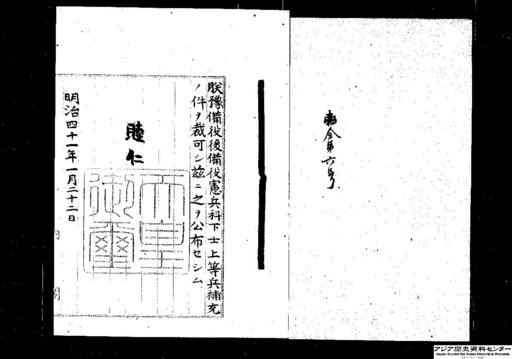 勅令第六号
朕豫備役後備役憲兵科下士上等兵補充
ノ件ヲ裁可シ茲ニ之ヲ公布セシム
睦仁
天皇御璽
明治四十一年一月二十二日
アジア歴史資料センター
Japan Center for Asian Historical Records